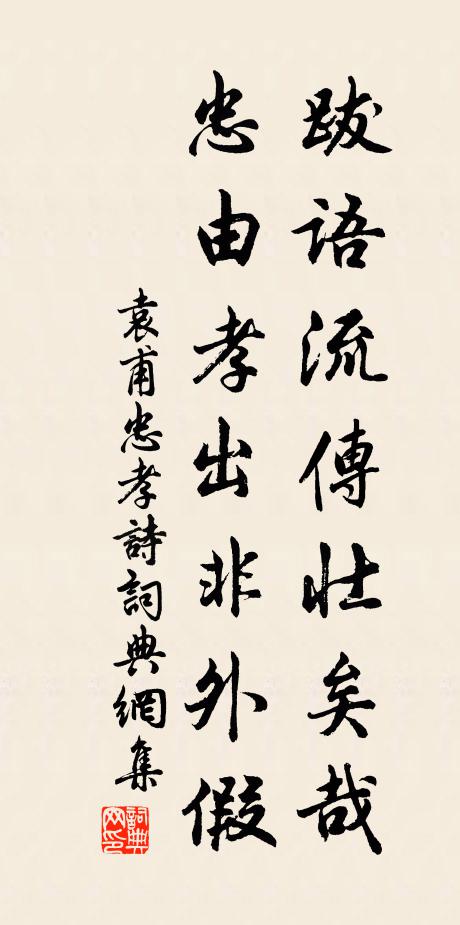 跋語流傳壯矣哉
忠由孝出非外假
袁甫忠孝詩詞典網集
詞典網印